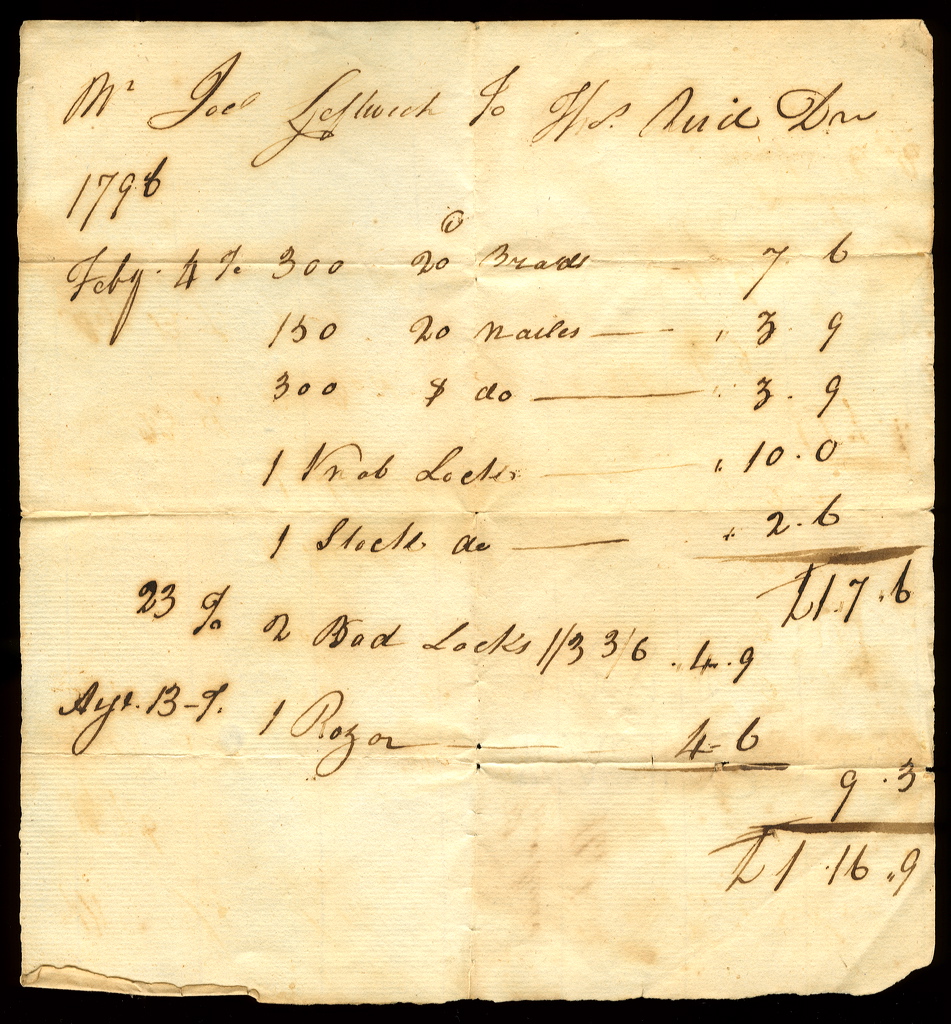 Mr Joel Leftwich To Thos. Reid Dr
1796
d
Feby. 4 To 300 20 Brads 7 6
150 20 nailes " 3. 9
300 8 do " 3. 9
1 Knob Lock " 10. 0
1 Stock do " 2. 6
£1. 7. 6
23 To 2 Pad Locks 1/3 3/6 . 4. 9
Apl. 13 - To 1 Rozor 4 - 6
9. 3
£1. 16 " 9